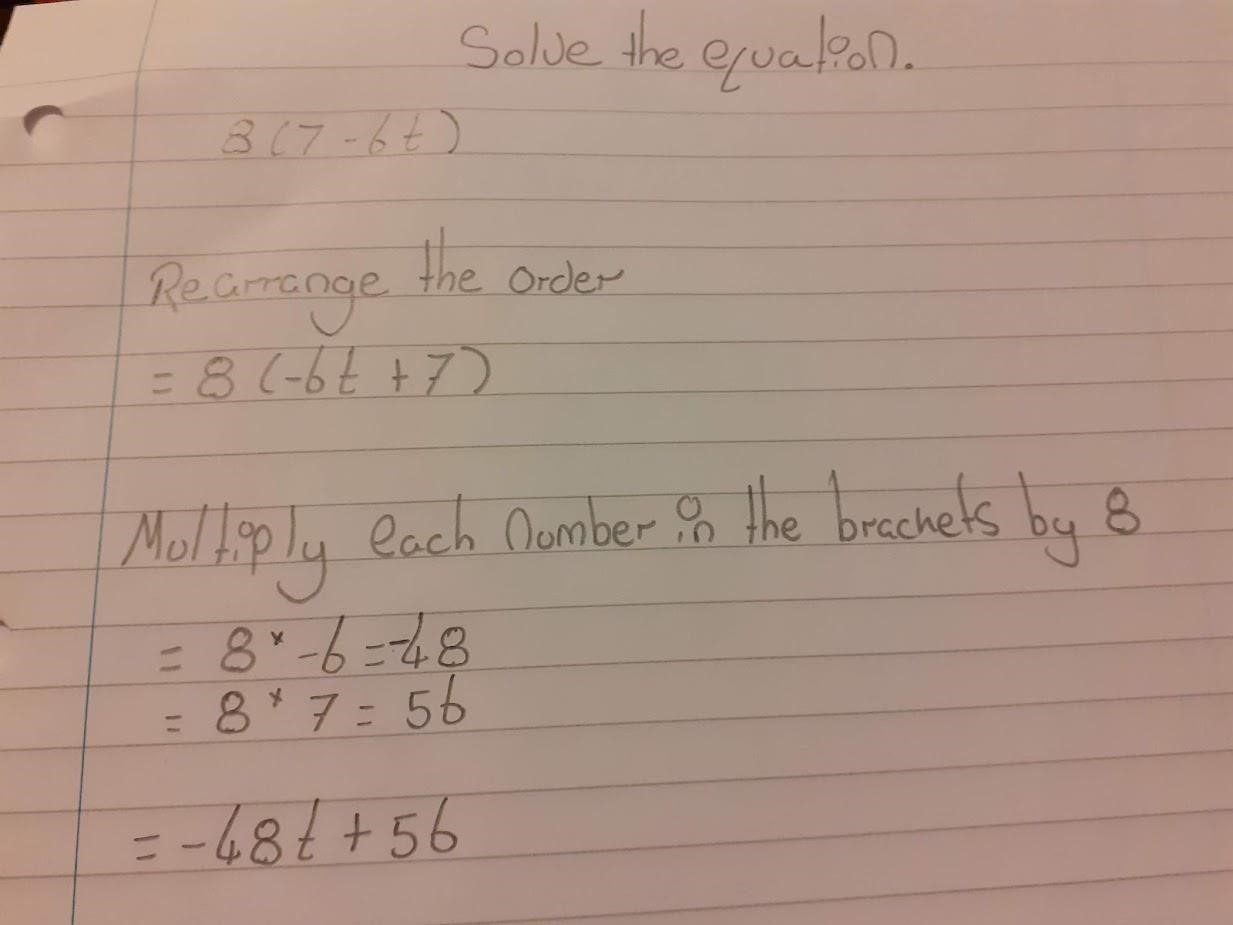 Solve the equation.
8(7-6t)
Rearrange the order
= 8 (-6t + 7)
Multiply each number in the brackets by 8
= 8 × -6 = -48
= 8 × 7 = 56
= -48t + 56